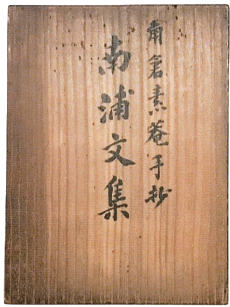 角倉素菴手抄
南浦文集